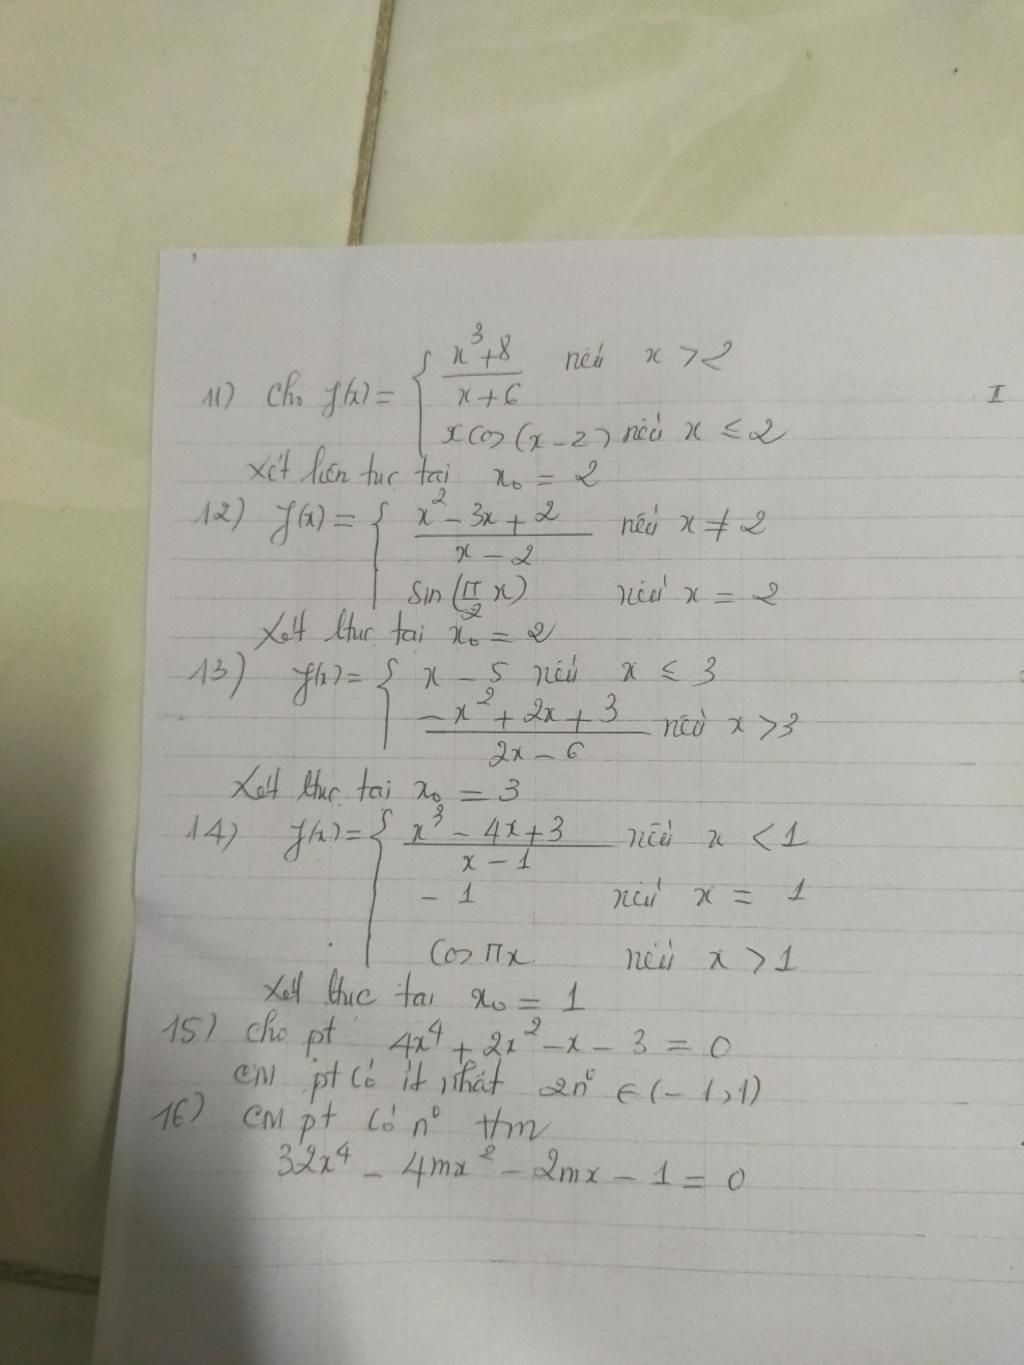 11) Cho f(x) = { x³+8 / x+6 nếu x > 2
x cos(x-2) nếu x ≤ 2
Xét liên tục tại x₀ = 2
12) f(x) = { x² - 3x + 2 / x - 2 nếu x ≠ 2
sin(π/2 x) nếu x = 2
Xét ltục tại x₀ = 2
13) f(x) = { x - 5 nếu x ≤ 3
-x² + 2x + 3 / 2x - 6 nếu x > 3
Xét ltục tại x₀ = 3
14) f(x) = { x³ - 4x + 3 / x - 1 nếu x < 1
- 1 nếu x = 1
Cos πx nếu x > 1
Xét ltục tại x₀ = 1
15) Cho pt 4x⁴ + 2x² - x - 3 = 0
CM pt có ít nhất 2n⁰ ∈ (-1,1)
16) CM pt có n⁰ ∀m
32x⁴ - 4mx² - 2mx - 1 = 0
I